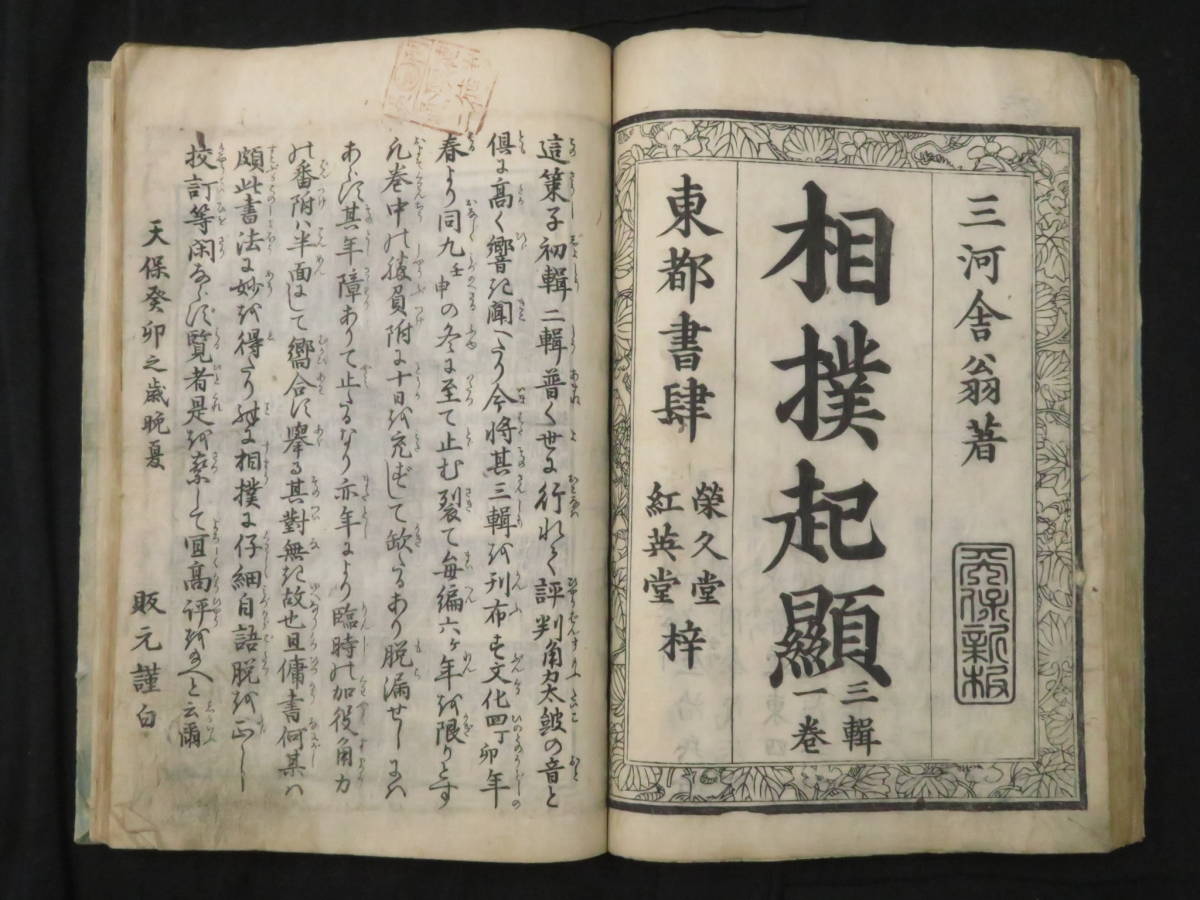 三河舎翁著
天保新板
相撲起顯
三輯
一巻
東都書肆
榮久堂
紅英堂
梓
這策子初輯二輯普く世に行れて評判角觝太皷の音と
倶に高く響き聞へたり今将其三輯を刊布す文化四丁卯年
春より同九壬申の冬に至て止む裂て毎編六ヶ年を限りとす
凡巻中の勝負附に十日を充ずして欠たるあり脱漏せしにハ
あらず其年障ありて止たるなり亦年により臨時の加役角力
の番附ハ半面にして嚮合に擧る其對無き故也且傭書何某ハ
頗此書法に妙を得たり殊に相撲に仔細自語脱を正し
挍訂等閑ならず覧者是を察して宜高評をたまへと云爾
天保癸卯之歳晩夏
販元謹白